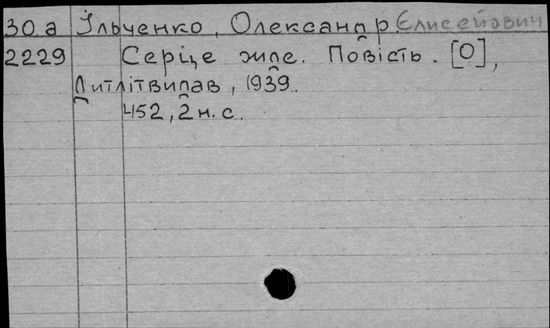 30 а Ільченко, Олександр Єлисейович
2229 Серце жде. Повість. [О],
Дитлітвидав, 1939.
452, 2 н. с.